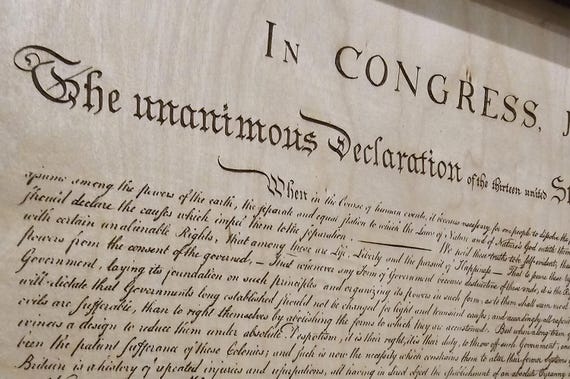 IN CONGRESS, J
The unanimous Declaration of the thirteen united St
When in the Course of human events, it becomes necessary for one people to dissolve the p
assume among the powers of the earth, the separate and equal station to which the Laws of Nature and of Nature's God entitle them
should declare the causes which impel them to the separation. We hold these truths to be self-evident, that
with certain unalienable Rights, that among these are Life, Liberty and the pursuit of Happiness — That to secure these
powers from the consent of the governed, — That whenever any Form of Government becomes destructive of these ends, it is the Ri
Government, laying its foundation on such principles and organizing its powers in such form, as to them shall seem most
will dictate that Governments long established should not be changed for light and transient causes; and accordingly all experi
evils are sufferable, than to right themselves by abolishing the forms to which they are accustomed. But when a long train
evinces a design to reduce them under absolute Despotism, it is their right, it is their duty, to throw off such Government, and
been the patient sufferance of these Colonies; and such is now the necessity which constrains them to alter their former Systems of
Britain is a history of repeated injuries and usurpations, all having in direct object the establishment of an absolute Tyranny